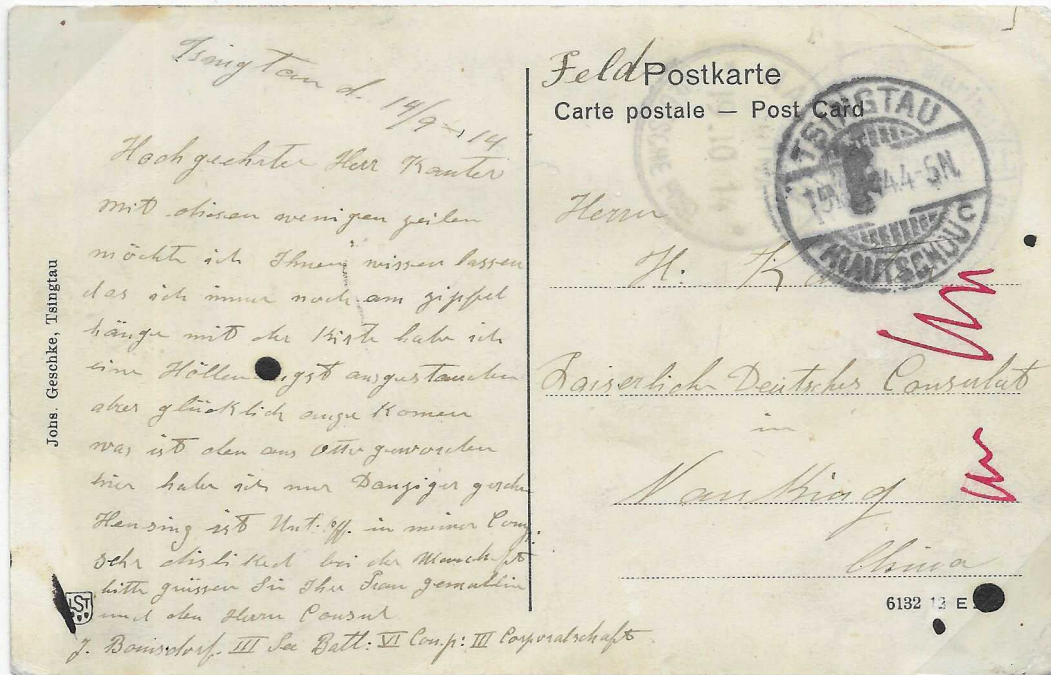 Tsingtau d. 14/9 14
Hochgeehrter Herr Kanter
mit diesen wenigen zeilen
möchte ich Ihnen wissen lassen
das ich immer noch am zipfel
hänge mit der Kiste habe ich
eine Höllen gst ausgestanden
aber glücklich ange Komen
was ist den aus Otto geworden
hier habe ich nur Danziger
Hensing ist Unt. Off. in meiner Comp.
sehr disliked bei der Manschaft
bitte grüssen Sie Ihre Frau gemahlin
und den Herrn Consul
J. Bomsdorf. III See Batl: VI Comp: III Corporalschaft
Johs. Geschke, Tsingtau
LST
Feld Postkarte
Carte postale — Post Card
TSINGTAU
KIAUTSCHOU
C
Herrn
H. K
Kaiserlich Deutsches Consulat
in
Nanking
China
6132 12 E